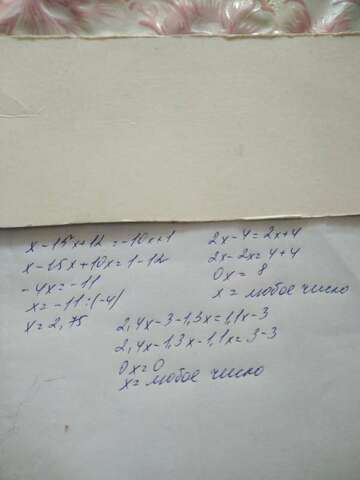 x-15x+12=-10x+1
x-15x+10x=1-12
-4x=-11
x=-11:(-4)
x=2,75
2x-4=2x+4
2x-2x=4+4
0x=8
x= любое число
2,4x-3-1,3x=1,1x-3
2,4x-1,3x-1,1x=3-3
0x=0
x= любое число